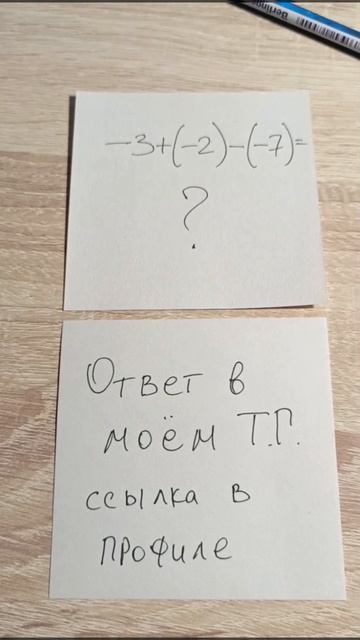 Berlingo
−3+(−2)−(−7)=
?
Ответ в
моём Т.Г.
ссылка в
профиле